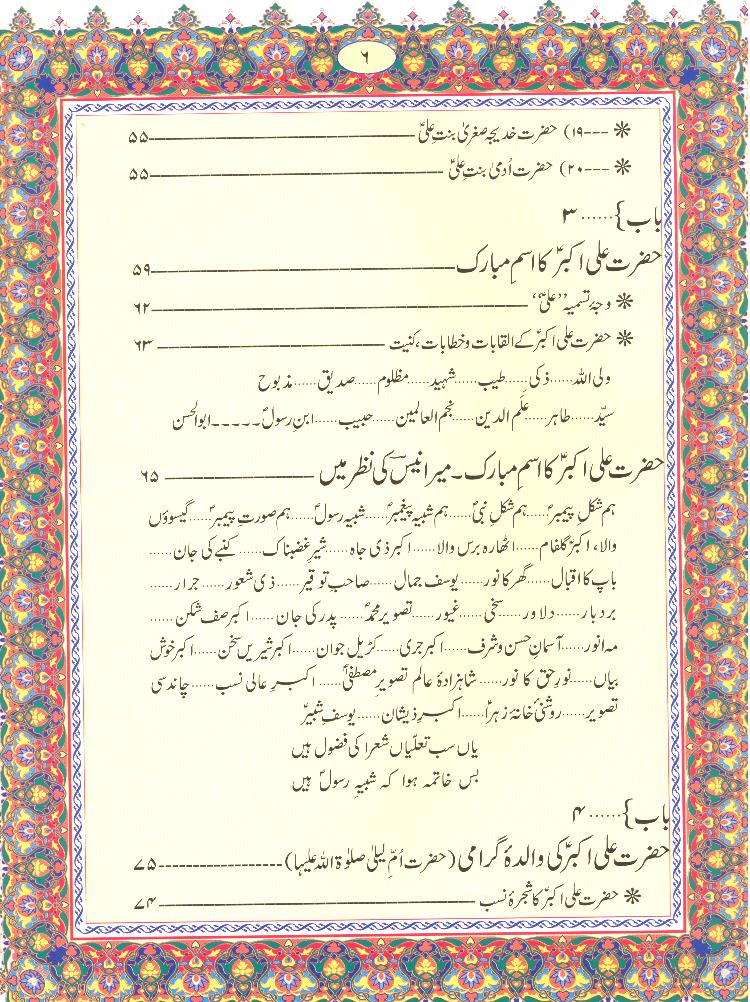 ۶
❋ ---۱۹) حضرت خدیجہ صغریٰ بنتِ علیؑ ــــــــــ ۵۵
❋ ---۲۰) حضرت اُدمیٰ بنتِ علیؑ ــــــــــ ۵۵
باب}......۳
حضرت علی اکبرؑ کا اسمِ مبارک ــــــــــ ۵۹
❋ وجۂ تسمیہ ”علیؑ“ ــــــــــ ۶۲
❋ حضرت علی اکبرؑ کے القابات و خطابات، کنیت ــــــــــ ۶۳
ولی اللہ.....ذکی.....طیب.....شہید.....مظلوم.....صدیق.....مذبوح
سیّد.....طاہر.....عَلَم الدین.....نجم العالمین.....حبیب.....ابنِ رسولؐ-----ابوالحسن
حضرت علی اکبرؑ کا اسمِ مبارک۔ میر انیسؔ کی نظر میں ــــــــــ ۶۵
ہم شکلِ پیمبرؐ.....ہم شکلِ نبیؐ.....ہم شبیہ پیغمبرؐ.....شبیہ رسولؐ.....ہم صورتِ پیمبرؐ.....گیسوؤں
والا، اکبرؑ گلفام.....اٹھارہ برس والا.....اکبر ذی جاہ.....شیرِ غضبناک.....کنبے کی جان.....
باپ کا اقبال.....گھر کا نور.....یوسف جمال.....صاحب توقیر.....ذی شعور.....جرار.....
بردبار.....دلاور.....سخی.....غیور.....تصویر محمدؐ.....پدر کی جان.....اکبر صف شکن.....
مہ انور.....آسمانِ حسن و شرف.....اکبر جری.....کڑیل جوان.....اکبر شیریں سخن.....اکبر خوش
بیاں.....نورِ حق کا نور.....شاہزادۂ عالم تصویرِ مصطفیٰؐ.....اکبرِ عالی نسب.....چاند سی
تصویر.....روشنیٔ خانۂ زہراؑ.....اکبرِ ذیشان.....یوسفِ شبیرؑ
یاں سب تعلّیاں شعرا کی فضول ہیں
بس خاتمہ ہوا کہ شبیہِ رسولؐ ہیں
باب}......۴
حضرت علی اکبرؑ کی والدۂ گرامی (حضرت اُمّ لیلیٰ صلوٰۃ اللہ علیہا)-----------------۷۵
❋ حضرت علی اکبرؑ کا شجرۂ نسب ــــــــــ ۷۴